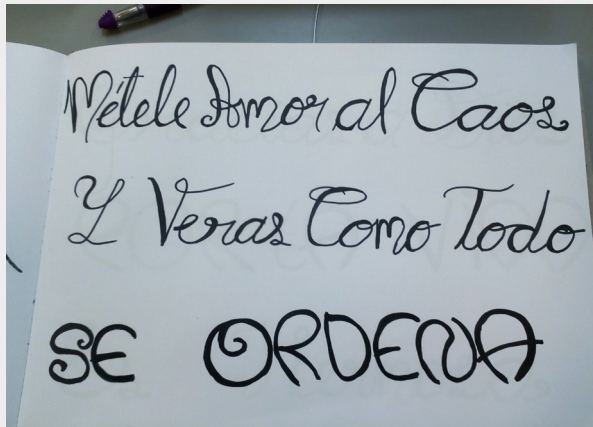 Métele Amor al Caos
Y Veras Como Todo
SE ORDENA